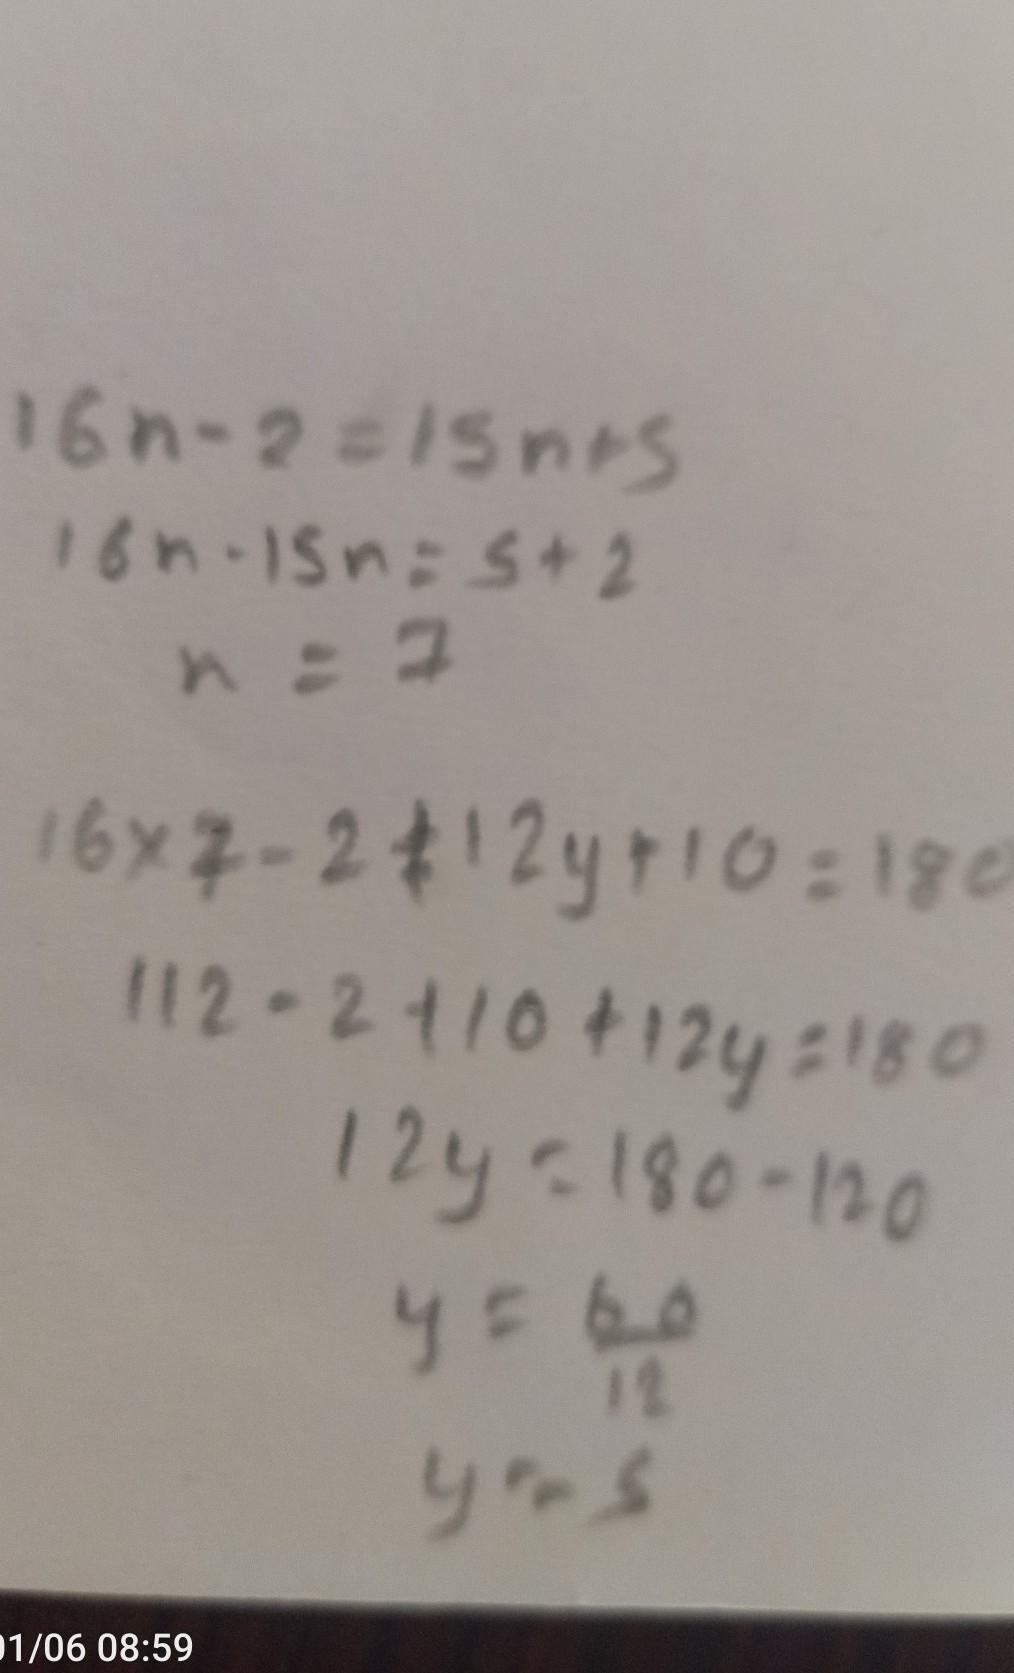 16n-2=15n+5
16n-15n=5+2
n=7
16×7-2+12y+10=180
112-2+10+12y=180
12y=180-120
y=60/12
y=5
01/06 08:59